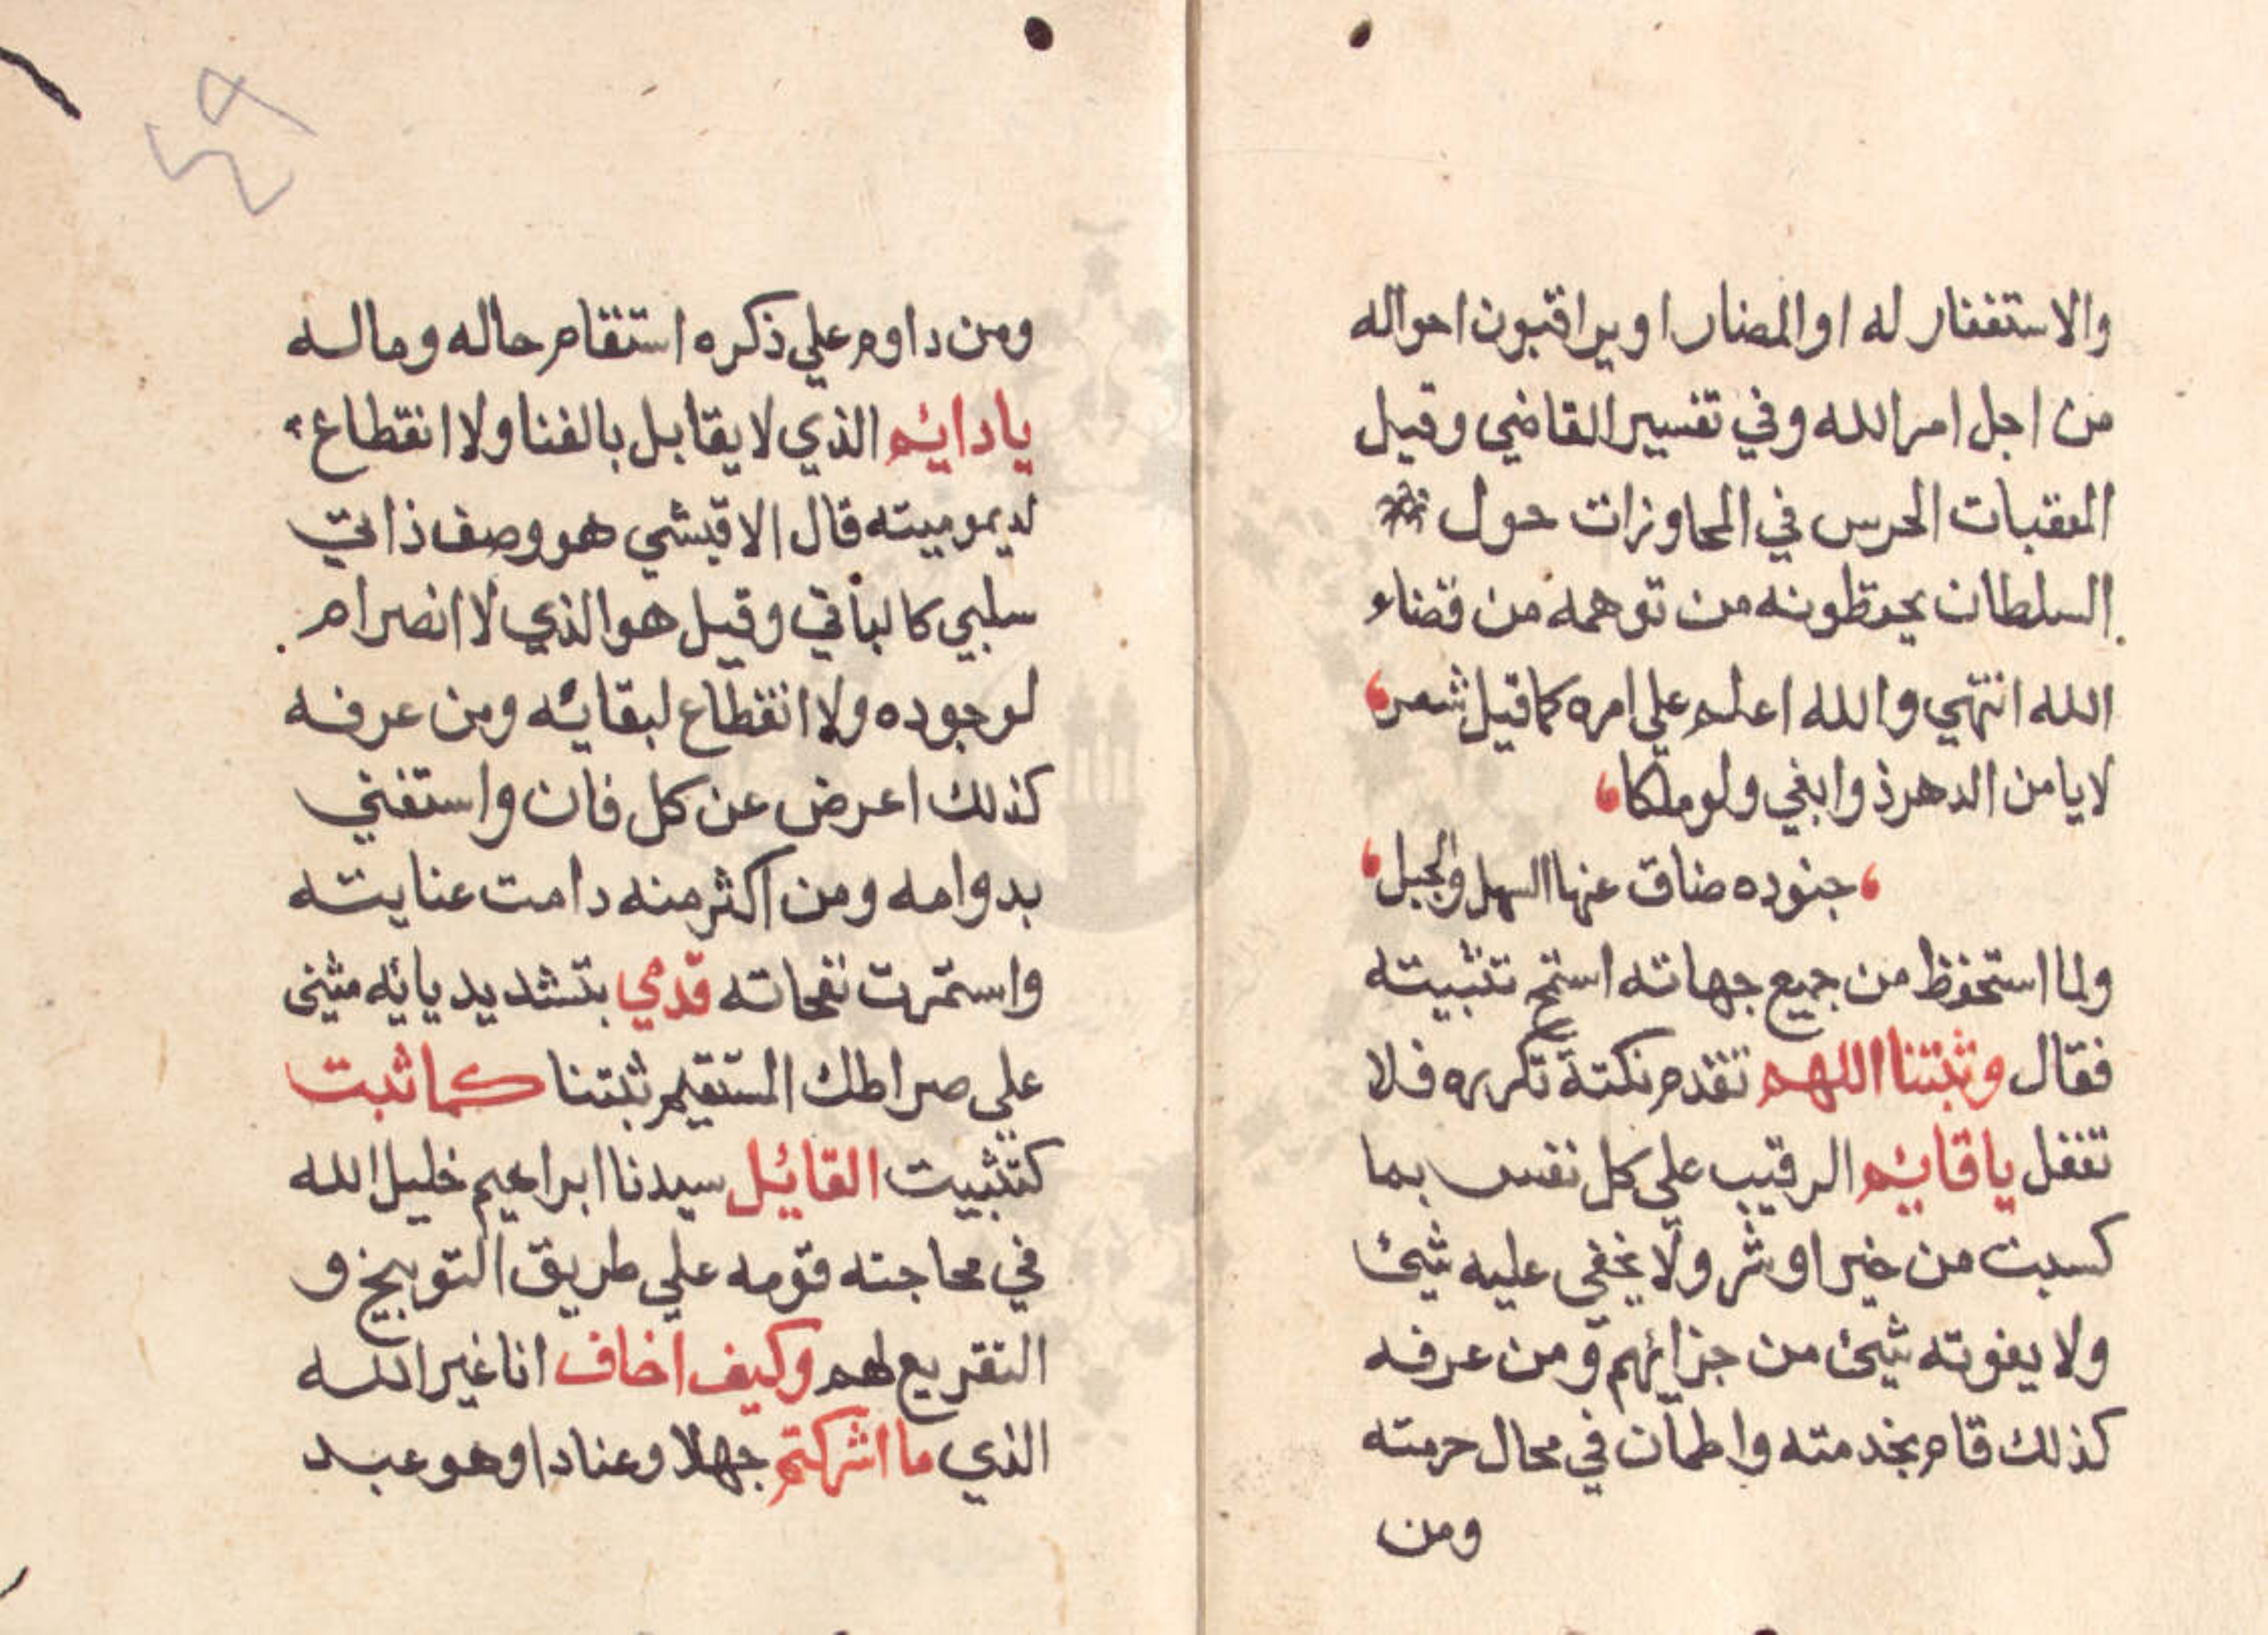 والاستغفار له او المضار او يراقبون احواله
من اجل امر الله وفي تفسير القاضي وقيل
المعقبات الحرس في المحاوزات حول
السلطان يحفظونه من توهمه من قضاء
الله انتهي والله اعلم علي امره كما قيل شعر
لا يا من الدهر ذوا بغي ولو ملكا
جنوده ضاق عنها السهل والجبل
ولما استحفظ من جميع جهاته استمنح تثبيته
فقال وثبتنا اللهم تقدم نكتة تكرره فلا
تغفل يا قايم الرقيب علي كل نفس بما
كسبت من خير او شر ولا يخفي عليه شيئ
ولا يفوته شيئ من جزائهم ومن عرفه
كذلك قام بخدمته واطمأن في محال حرمته
ومن
ومن داوم علي ذكره استقام حاله وماله
يا دايم الذي لا يقابل بالفنا ولا انقطاع
لديموميته قال الاقيشي هو وصف ذاتي
سلبي كالباقي وقيل هو الذي لا انصرام
لوجوده ولا انقطاع لبقايه ومن عرفه
كذلك اعرض عن كل فان واستغني
بدوامه ومن اكثر منه دامت عنايته
واستمرت نفحاته قدمي بتشديد يائه مثنى
علي صراطك المستقيم ثبتنا كما ثبت
كتثبيت القائل سيدنا ابراهيم خليل الله
في محاجته قومه علي طريق التوبيخ و
التقريع لهم وكيف اخاف انا غير الله
الذي ما اشركتم جهلا وعنادا وهو عبد